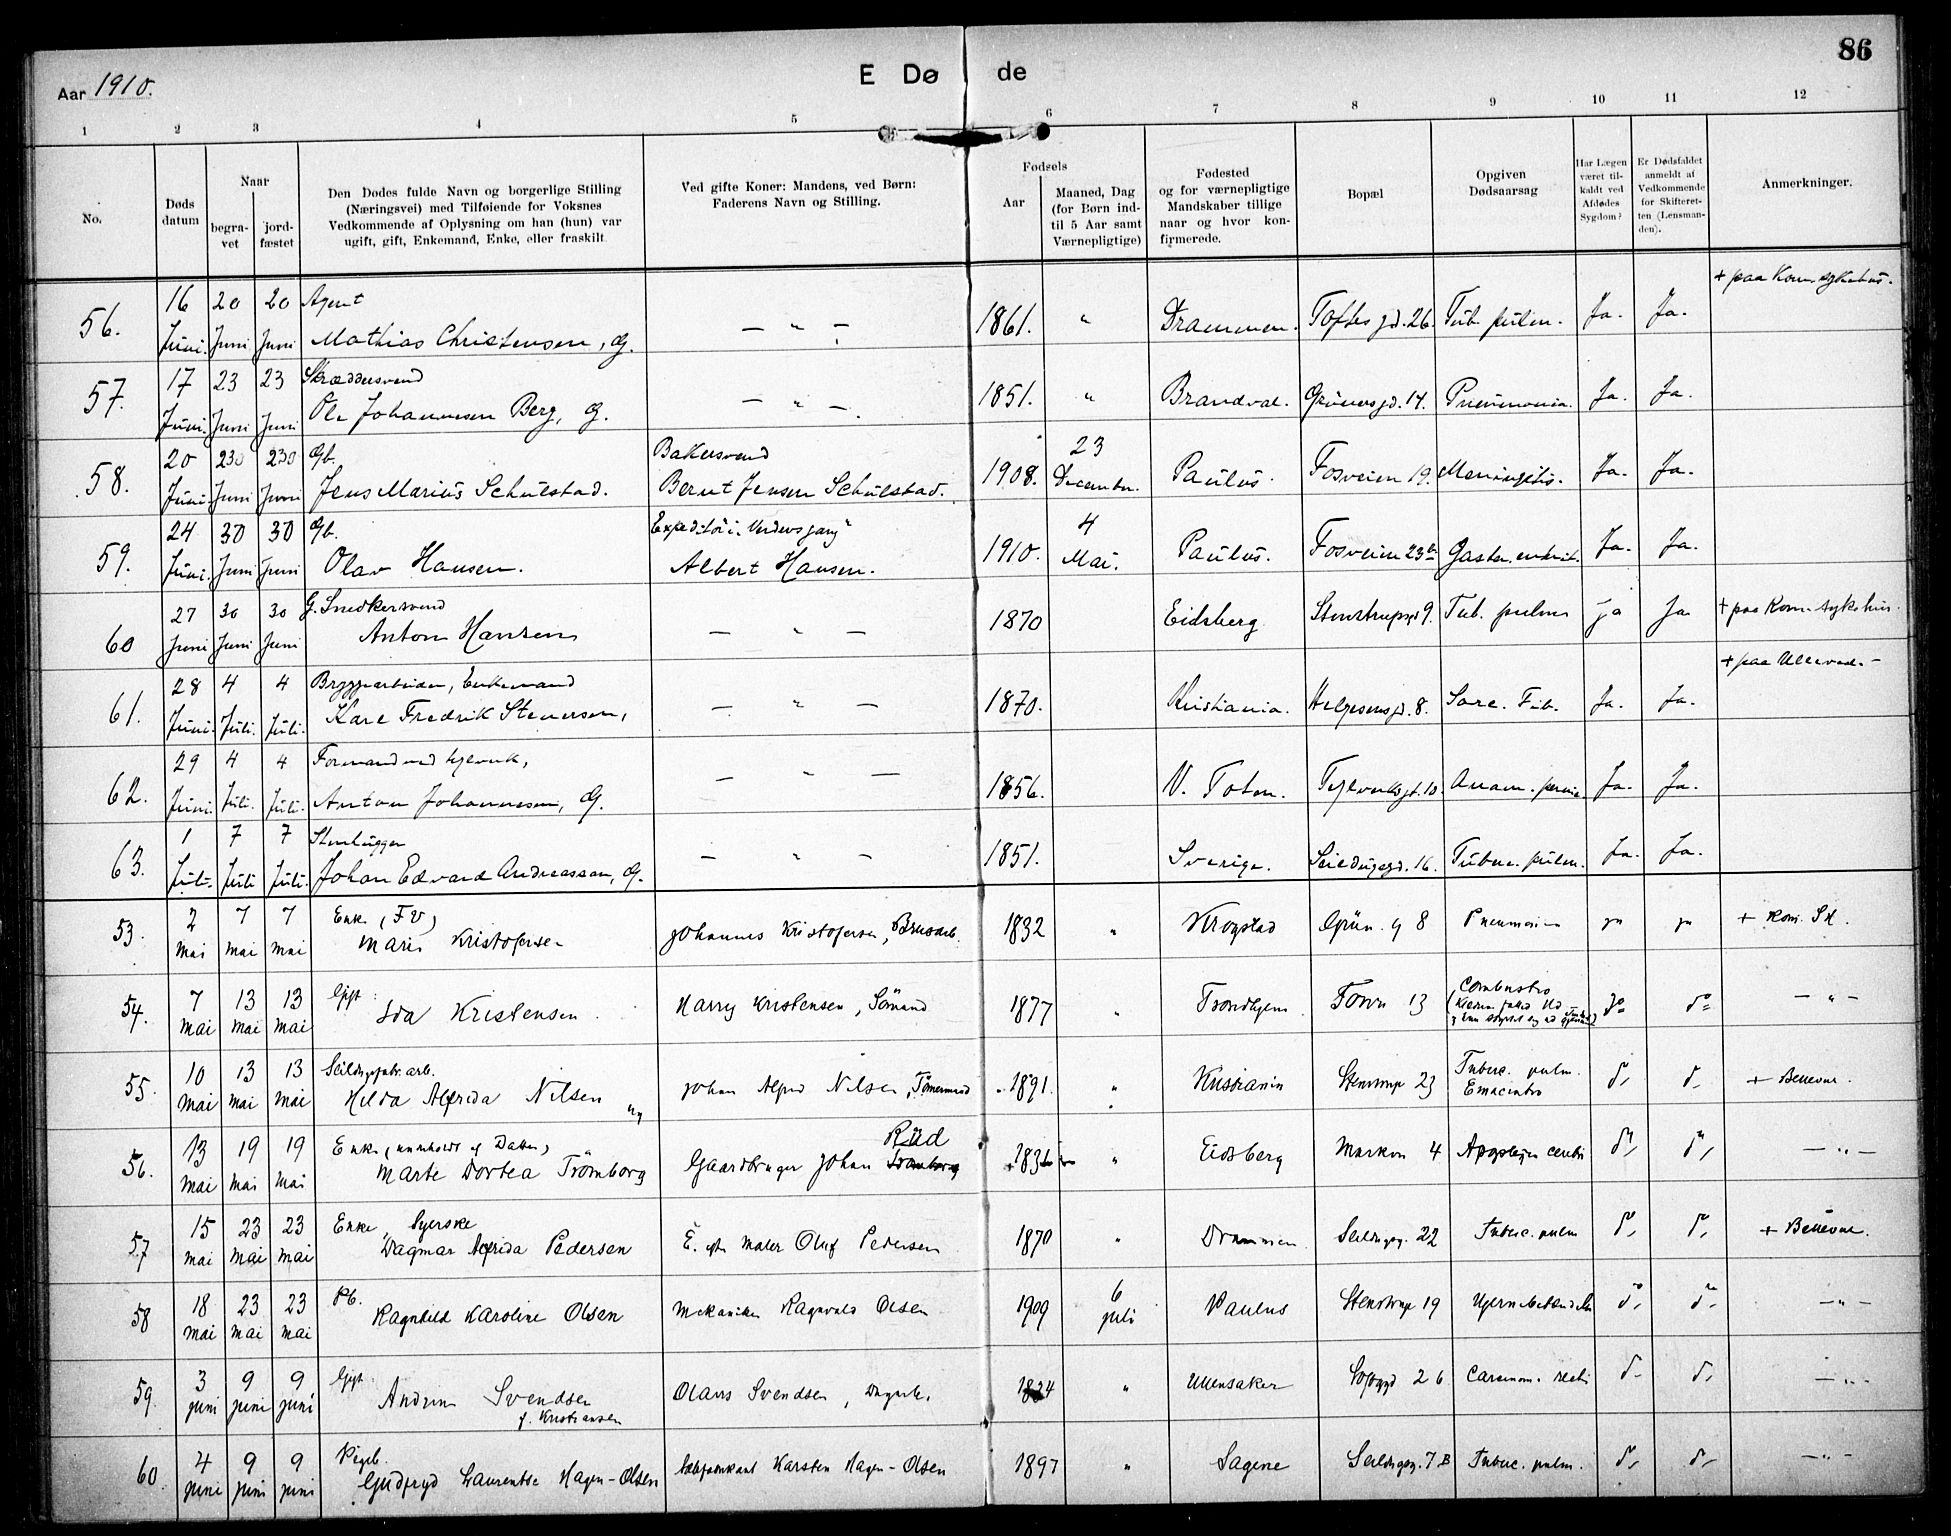 86
Aar 1910.
E Dø de
1 2 3 4 5 6 7 8 9 10 11 12
No.
Døds datum
Naar
begra-vet
jord-fæstet
Den Dødes fulde Navn og borgerlige Stilling
(Næringsvei) med Tilføiende for Voksnes
Vedkommende af Oplysning om han (hun) var
ugift, gift, Enkemand, Enke, eller fraskilt
Ved gifte Koner: Mandens, ved Børn:
Faderens Navn og Stilling.
Fødsels
Aar
Maaned, Dag
(for Børn ind-
til 5 Aar samt
Værnepligtige)
Fødested
og for værnepligtige
Mandskaber tillige
naar og hvor kon-
firmerede.
Bopæl
Opgiven
Dødsaarsag
Har Lægen
været til-
kaldt ved
Afdødes
Sygdom?
Er Dødsfaldet
anmeldt af
Vedkommende
for Skifteret-
ten (Lensman-
den).
Anmerkninger.
+ paa Kom. sykehus.
16 20 20 Agent
56. Juni. Juni Juni Mathias Christensen, G. — " — 1861. " Drammen. Toftes gd. 26. Tub. pulm. Ja. Ja.
17 23 23 Skræddersvend
57. Juni. Juni Juni Ole Johannesen Berg, G. — " — 1851. " Brandval. Grünersgd. 14. Pneumonia. Ja. Ja.
20 230 230 Gb. Bakersvend 23
58. Juni. Juni Juni Jens Marius Schulstad. Bernt Jensen Schulstad. 1908. December. Paulus. Fosveien 19. Meningitis. Ja. Ja.
24 30 30 Gb. Expeditør i "Verdensgang" 4
59. Juni. Juni Juni Olav Hansen. Albert Hansen. 1910. Mai. Paulus. Fosveien 23 b Gastro. enterit. Ja. Ja.
27 30 30 G. Snedkersvend
60 Juni Juni Juni Anton Hansen — " — 1870 Eidsberg Stenstrupgd 9. Tub. pulm ja Ja + paa Kom. sykehus.
+ paa Ullevaal. —
28 4 4 Bryggearbeider, Enkemand
61. Juni. Juli. Juli. Karl Fredrik Stenersen, — " — 1870. Kristiania. Helgesensgd. 8. Sarc. Tub. Ja. Ja.
29 4 4 Formand ved
62. Juni. Juli. Juli. Anton Johannesen, G. — " — 1856. V. Toten. 10. Anæm. pernic. Ja. Ja.
1 7 7 Stenhugger
63. Juli. Juli Juli. Johan Edvard Andreassen, G. — " — 1851. Sverige. Seildugsgd. 16. Tuberc. pulm. Ja. Ja.
2 7 7 Enke (FV)
53. Mai Mai Mai Marie Kristofersen Johannes Kristofersen, 1832 " Krogstad Grün. g 8 Pneumonia ja ja + Kom. S H.
7 13 13 Gift
54. Mai Mai Mai Ida Kristensen Harry Kristensen, Sömand 1877 " Trondhjem Fosvn 13 Combustio do do — " —
10 13 13 Seildugsfabr. arb.
55. Mai Mai Mai Hilda Alfrida Nilsen ug Johan Alfred Nilsen, Tömermand 1891. " Kristiania Stenstrup 23 Tuberc. pulm. Emaciatio do do + Bellevue.
13 19 19 Enke (underholdt af Datter) Rüd
56. Mai Mai Mai Marte Dortea Trömborg Gaardbruger Johan Tromborg " Eidsberg Markvn 4 Apoplexia cerebri do do — " —
15 23 23 Enke, Syerske
57 Mai Mai Mai Dagmar Alfrida Pedersen E. eft. Maler Oluf Pedersen 1870 " Drammen Seildugsg. 22 Tuberc. pulm do do + Bellevue.
18 23 23 Pb. 6
58 Mai Mai Mai Ragnhild Karoline Olsen Mekaniker Ragnvald Olsen 1909 juli Paulus Stenstrup 19 Hjernebetændelse do do — " —
3 9 9 Gift
59. juni juni juni Andrea Svendsen Olaus Svendsen, Dagarb. 1834 " Ullensaker Sofiegd 26 Carcinom. recti do do — " —
f. Kristiansen
4 9 9 Pigeb.
60. juni juni juni Gudfryd Laurentse Hagen-Olsen Sæbefabrikant Karsten Hagen-Olsen 1897 " Sagene Seildugsg. 7 B Tuberc. pulm. do do — " —